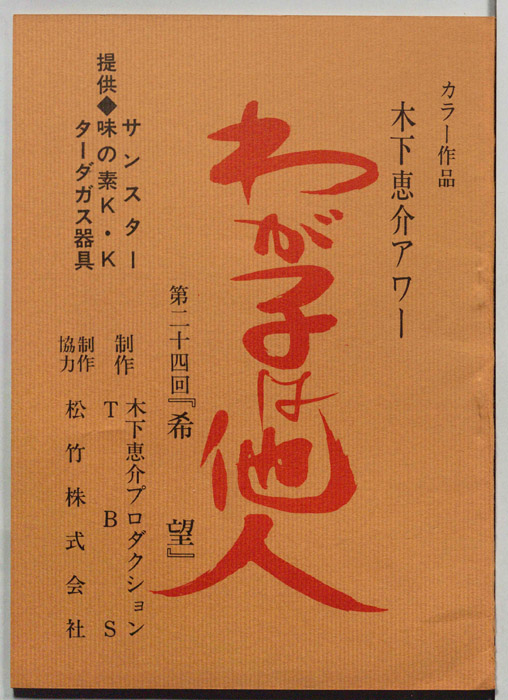 カラー作品
木下恵介アワー
わが子は他人
第二十四回『希望』
提供◆
サンスター
味の素K・K
ターダガス器具
制作
木下恵介プロダクション
TBS
制作協力
松竹株式会社